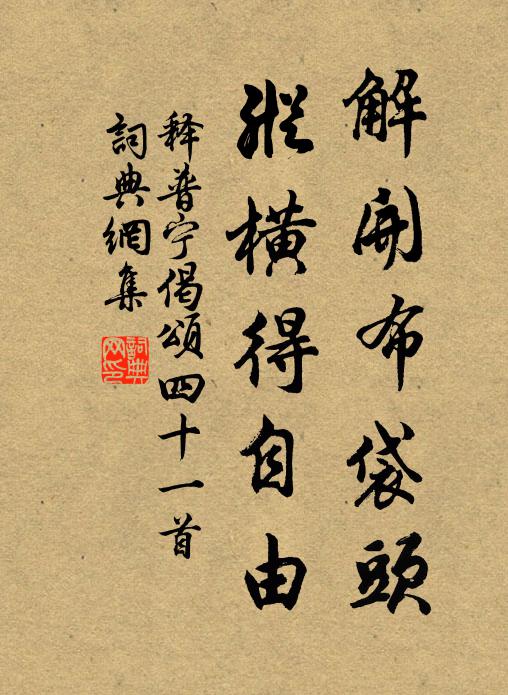 解開布袋頭
縱橫得自由
释普宁偈頌四十一首
詞典網集
詞典网印